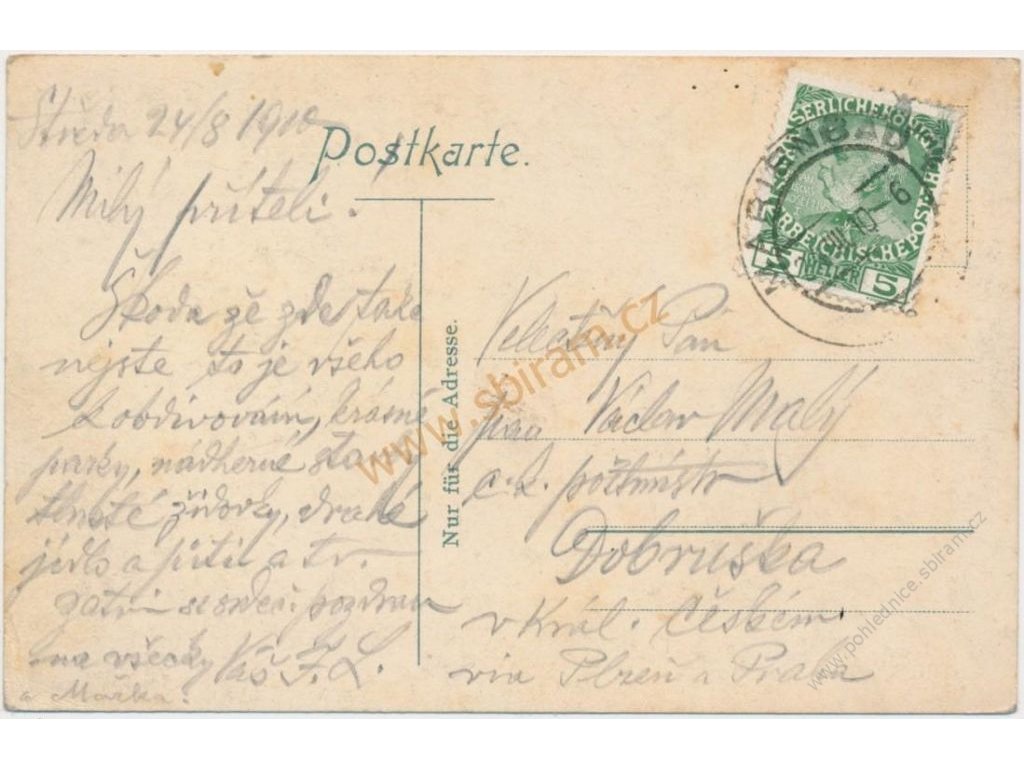 Středa 24/8 1910
Postkarte.
Milý příteli!
Škoda že zde také
nejste to je všeho
k obdivování, krásné
parky, nádherné stavby
tlusté židovky, drahé
jídlo a pití a t.
srdeč. pozdrav
na všecky Váš F. L.
a Mařka.
Nur für die Adresse.
Velectěný Pán
pan Václav Malý
c. k. poštmistr
Dobruška
v Král. Českém
via Plzeň a Praha
MARIENBAD
KAISERLICHE KÖNIGLICHE
ÖSTERREICHISCHE POST
5 HELLER 5
www.sbiram.cz
www.pohlednice.sbiram.cz